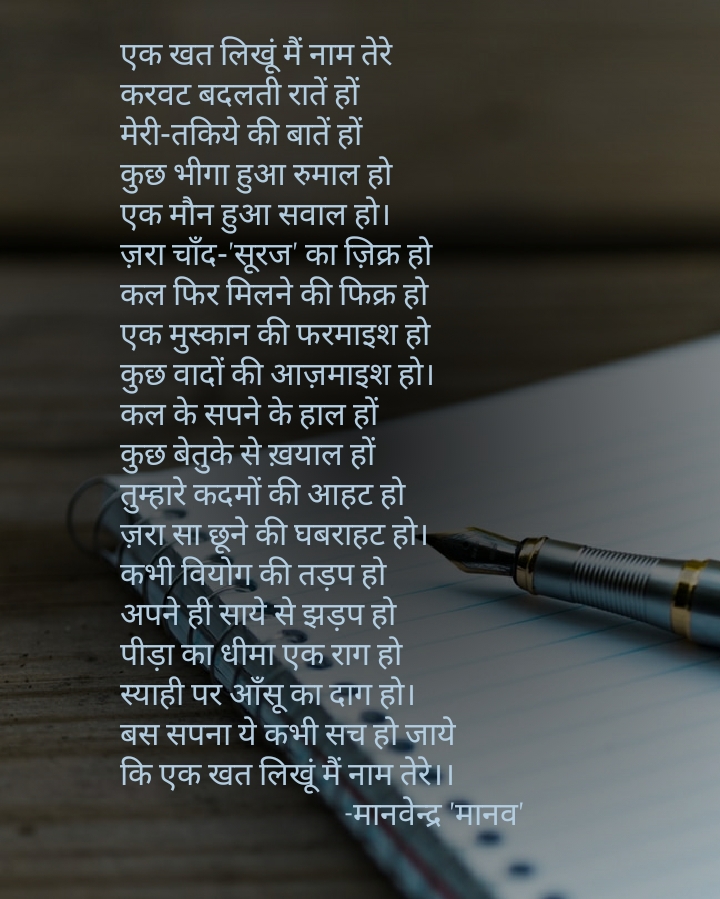 एक खत लिखूं मैं नाम तेरे
करवट बदलती रातें हों
मेरी-तकिये की बातें हों
कुछ भीगा हुआ रुमाल हो
एक मौन हुआ सवाल हो।
ज़रा चाँद-'सूरज' का ज़िक्र हो
कल फिर मिलने की फिक्र हो
एक मुस्कान की फरमाइश हो
कुछ वादों की आज़माइश हो।
कल के सपने के हाल हों
कुछ बेतुके से ख़याल हों
तुम्हारे कदमों की आहट हो
ज़रा सा छूने की घबराहट हो।
कभी वियोग की तड़प हो
अपने ही साये से झड़प हो
पीड़ा का धीमा एक राग हो
स्याही पर आँसू का दाग हो।
बस सपना ये कभी सच हो जाये
कि एक खत लिखूं मैं नाम तेरे।।
-मानवेन्द्र 'मानव'